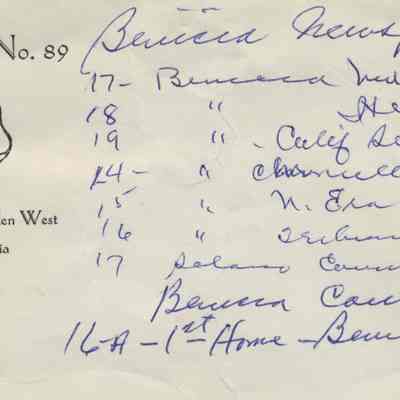 No. 89
Benicia News
17- Benicia
18 "
19 " - Calif
14- " Chronicle
15 " N. Era
16 " Tribune
17 Solano Coun
en West
ia
Benicia Cou
16-A - 1st Home - Beni